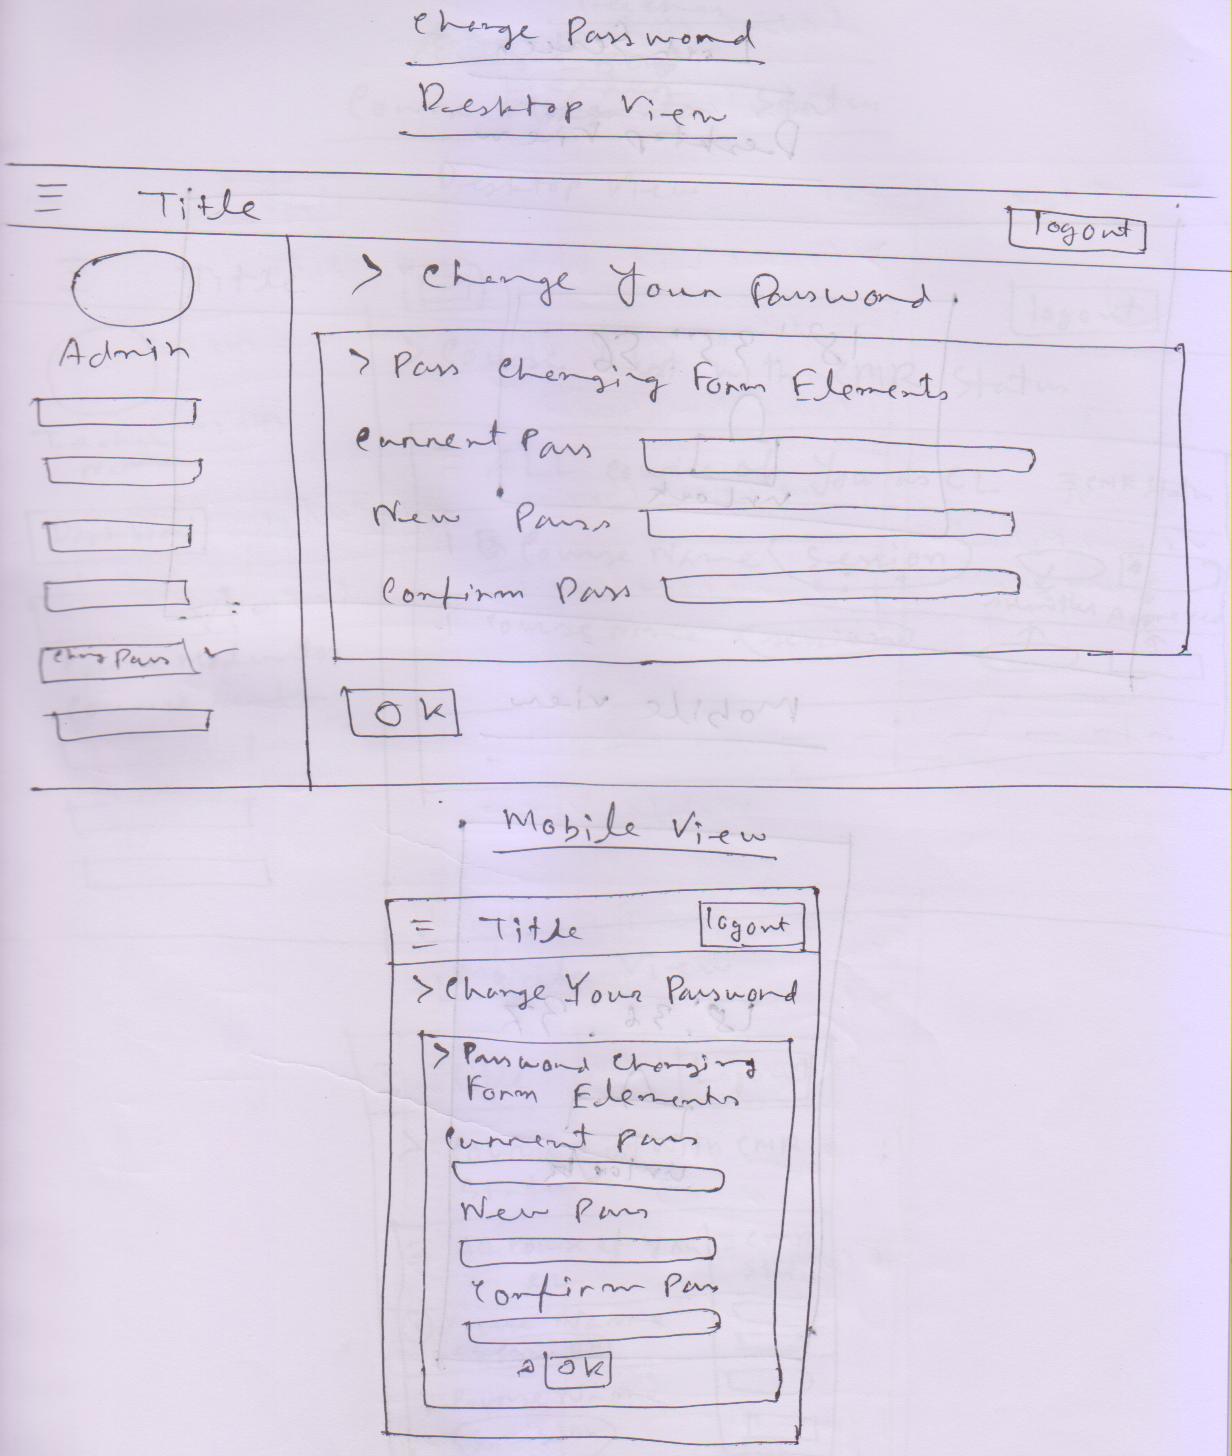 Change Password
Desktop View
Title
logout
> Change Your Password.
Admin
> Pass Changing Form Elements
Current Pass
New Pass
Confirm Pass
Pass
OK
Mobile View
Title
logout
> Change Your Password
> Password Changing
Form Elements
Current Pass
New Pass
Confirm Pass
OK